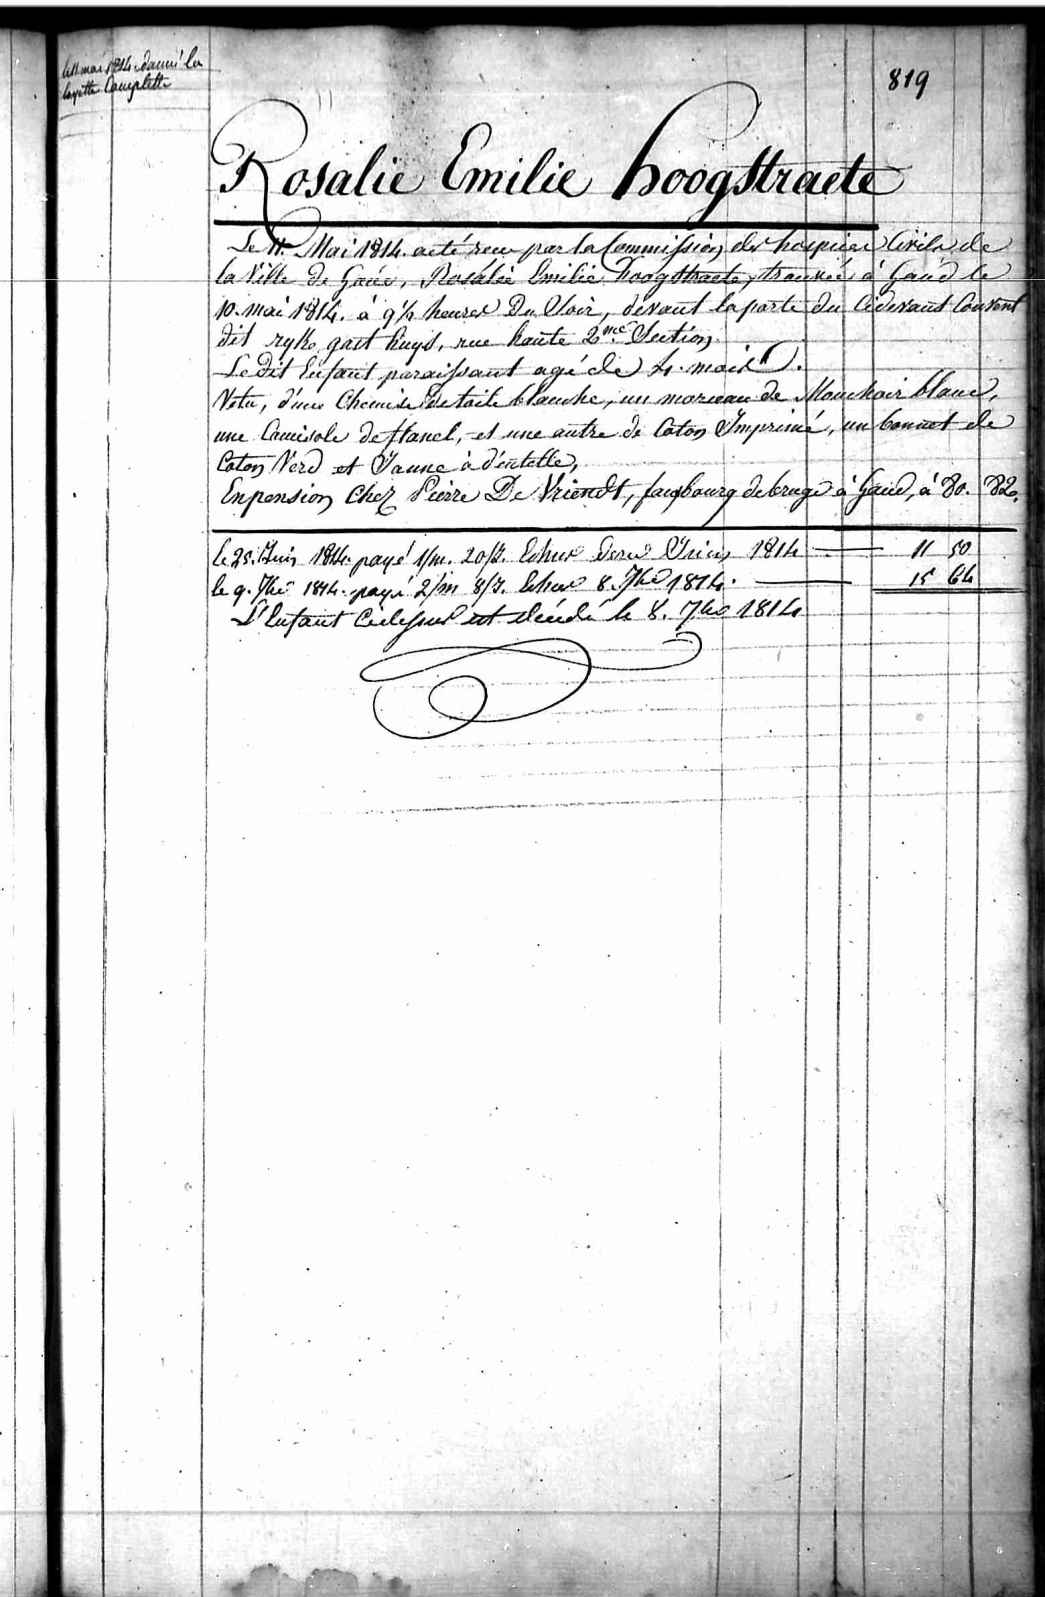 le 11 mai 1814. donné la
layette Complette
819
Rosalie Emilie hoogstraete
Le 11. Mai 1814. a été reçu par la Commission des hospices Civils de
la Ville de Gand, Rosalie Emilie hoogstraete, trouvée à Gand le
10. mai 1814. à 9½ heures Du Soir, devant la porte du Cidevant Couvent
dit ryke gast huys, rue haute 2me Section.
Le dit Enfant paraissant agé de 4. mois.
Vetu, d'une Chemise de toile blanche, un morceau de Mouchoir blanc,
une Camisole de flanel, et une autre de Coton Imprimé, un bonnet de
Coton Verd et Jaune à d'entelle,
En pension Chez Pierre De Vriendt, fauxbourg de bruge à Gand, à 80. 82.
le 25. Juin 1814. payé 1/m. 20/j. Echus Juin 1814 11 50
le 9. 7bre 1814. payé 2/m 8/j. Echus 8. 7bre 1814. 15 64
L'Enfant Cidessus est décédé le 8. 7bre 1814